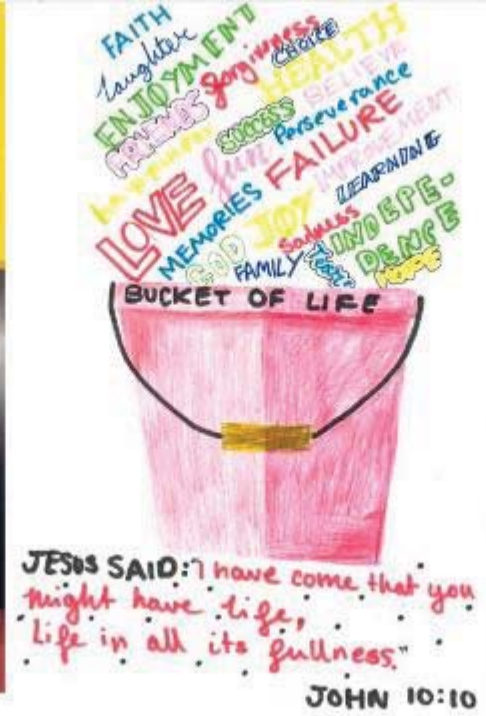 FAITH
laughter
ENJOYMENT
forgiveness
CHOICE
HEALTH
BELIEVE
FRIENDS
SUCCESS
Perseverance
happiness
fun
FAILURE
IMPROVEMENT
LOVE
MEMORIES
JOY
LEARNING
GOD
FAMILY
Sadness
INDEPE-
DENCE
HOPE
BUCKET OF LIFE
JESUS SAID: "I have come that you
might have life,
Life in all its fullness."
JOHN 10:10